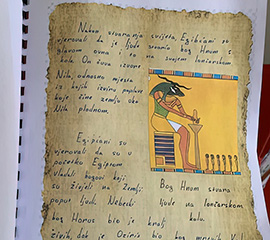 Nakon stvaranja svijeta, Egipćani su
vjerovali da je ljude stvorio bog Hnum s
glavom ovna i to na svojem lončarskom
kolu. On čuva izvore
Nila, odnosno mjesta
iz kojih izviru poplave
koje čine zemlju oko
Nila plodnom.
Egipćani su
vjerovali da su u
početku Egiptom
vladali bogovi koji
su živjeli na Zemlji
poput ljudi. Nebeski
bog Horus bio je kralj
živih, dok je Oziris bio bog mrtvih.
Bog Hnum stvara
ljude na lončarskom
kolu.